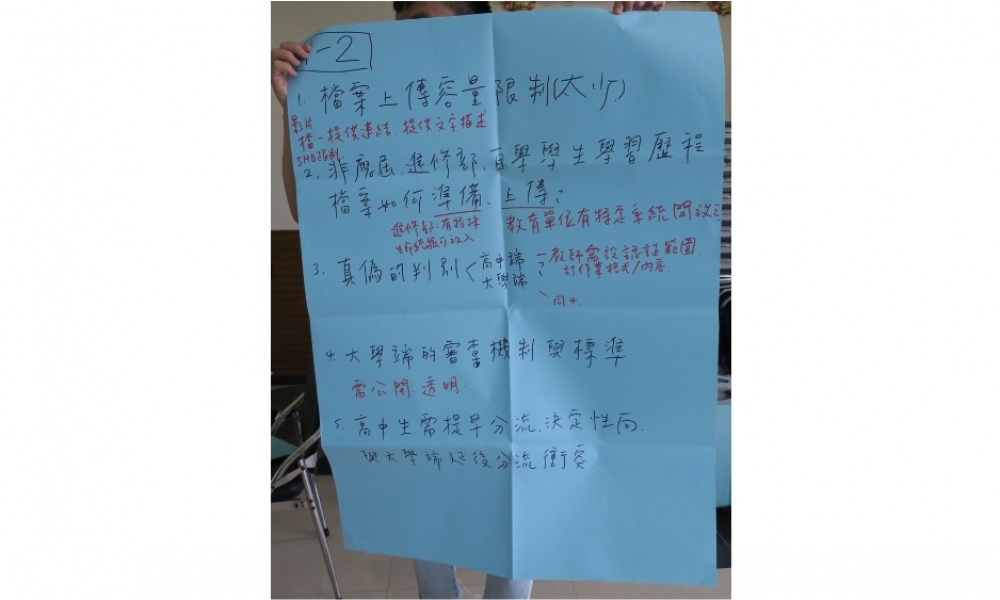 -2
1. 檔案上傳容量限制(太少)
影片
檔-提供連結、提供文字描述
2. 非應屆、進修部、自學學生學習歷程
檔案如何準備、上傳?
進修部:有特殊
教育單位有特定系統開放
3. 真偽的判別<高中端
大學端?
-教師需設認証範圍
訂作業格式/內容.
同4.
4. 大學端的審查機制與標準
需公開.透明.
5. 高中生需提早分流.決定性向.
與大學端延後分流衝突.